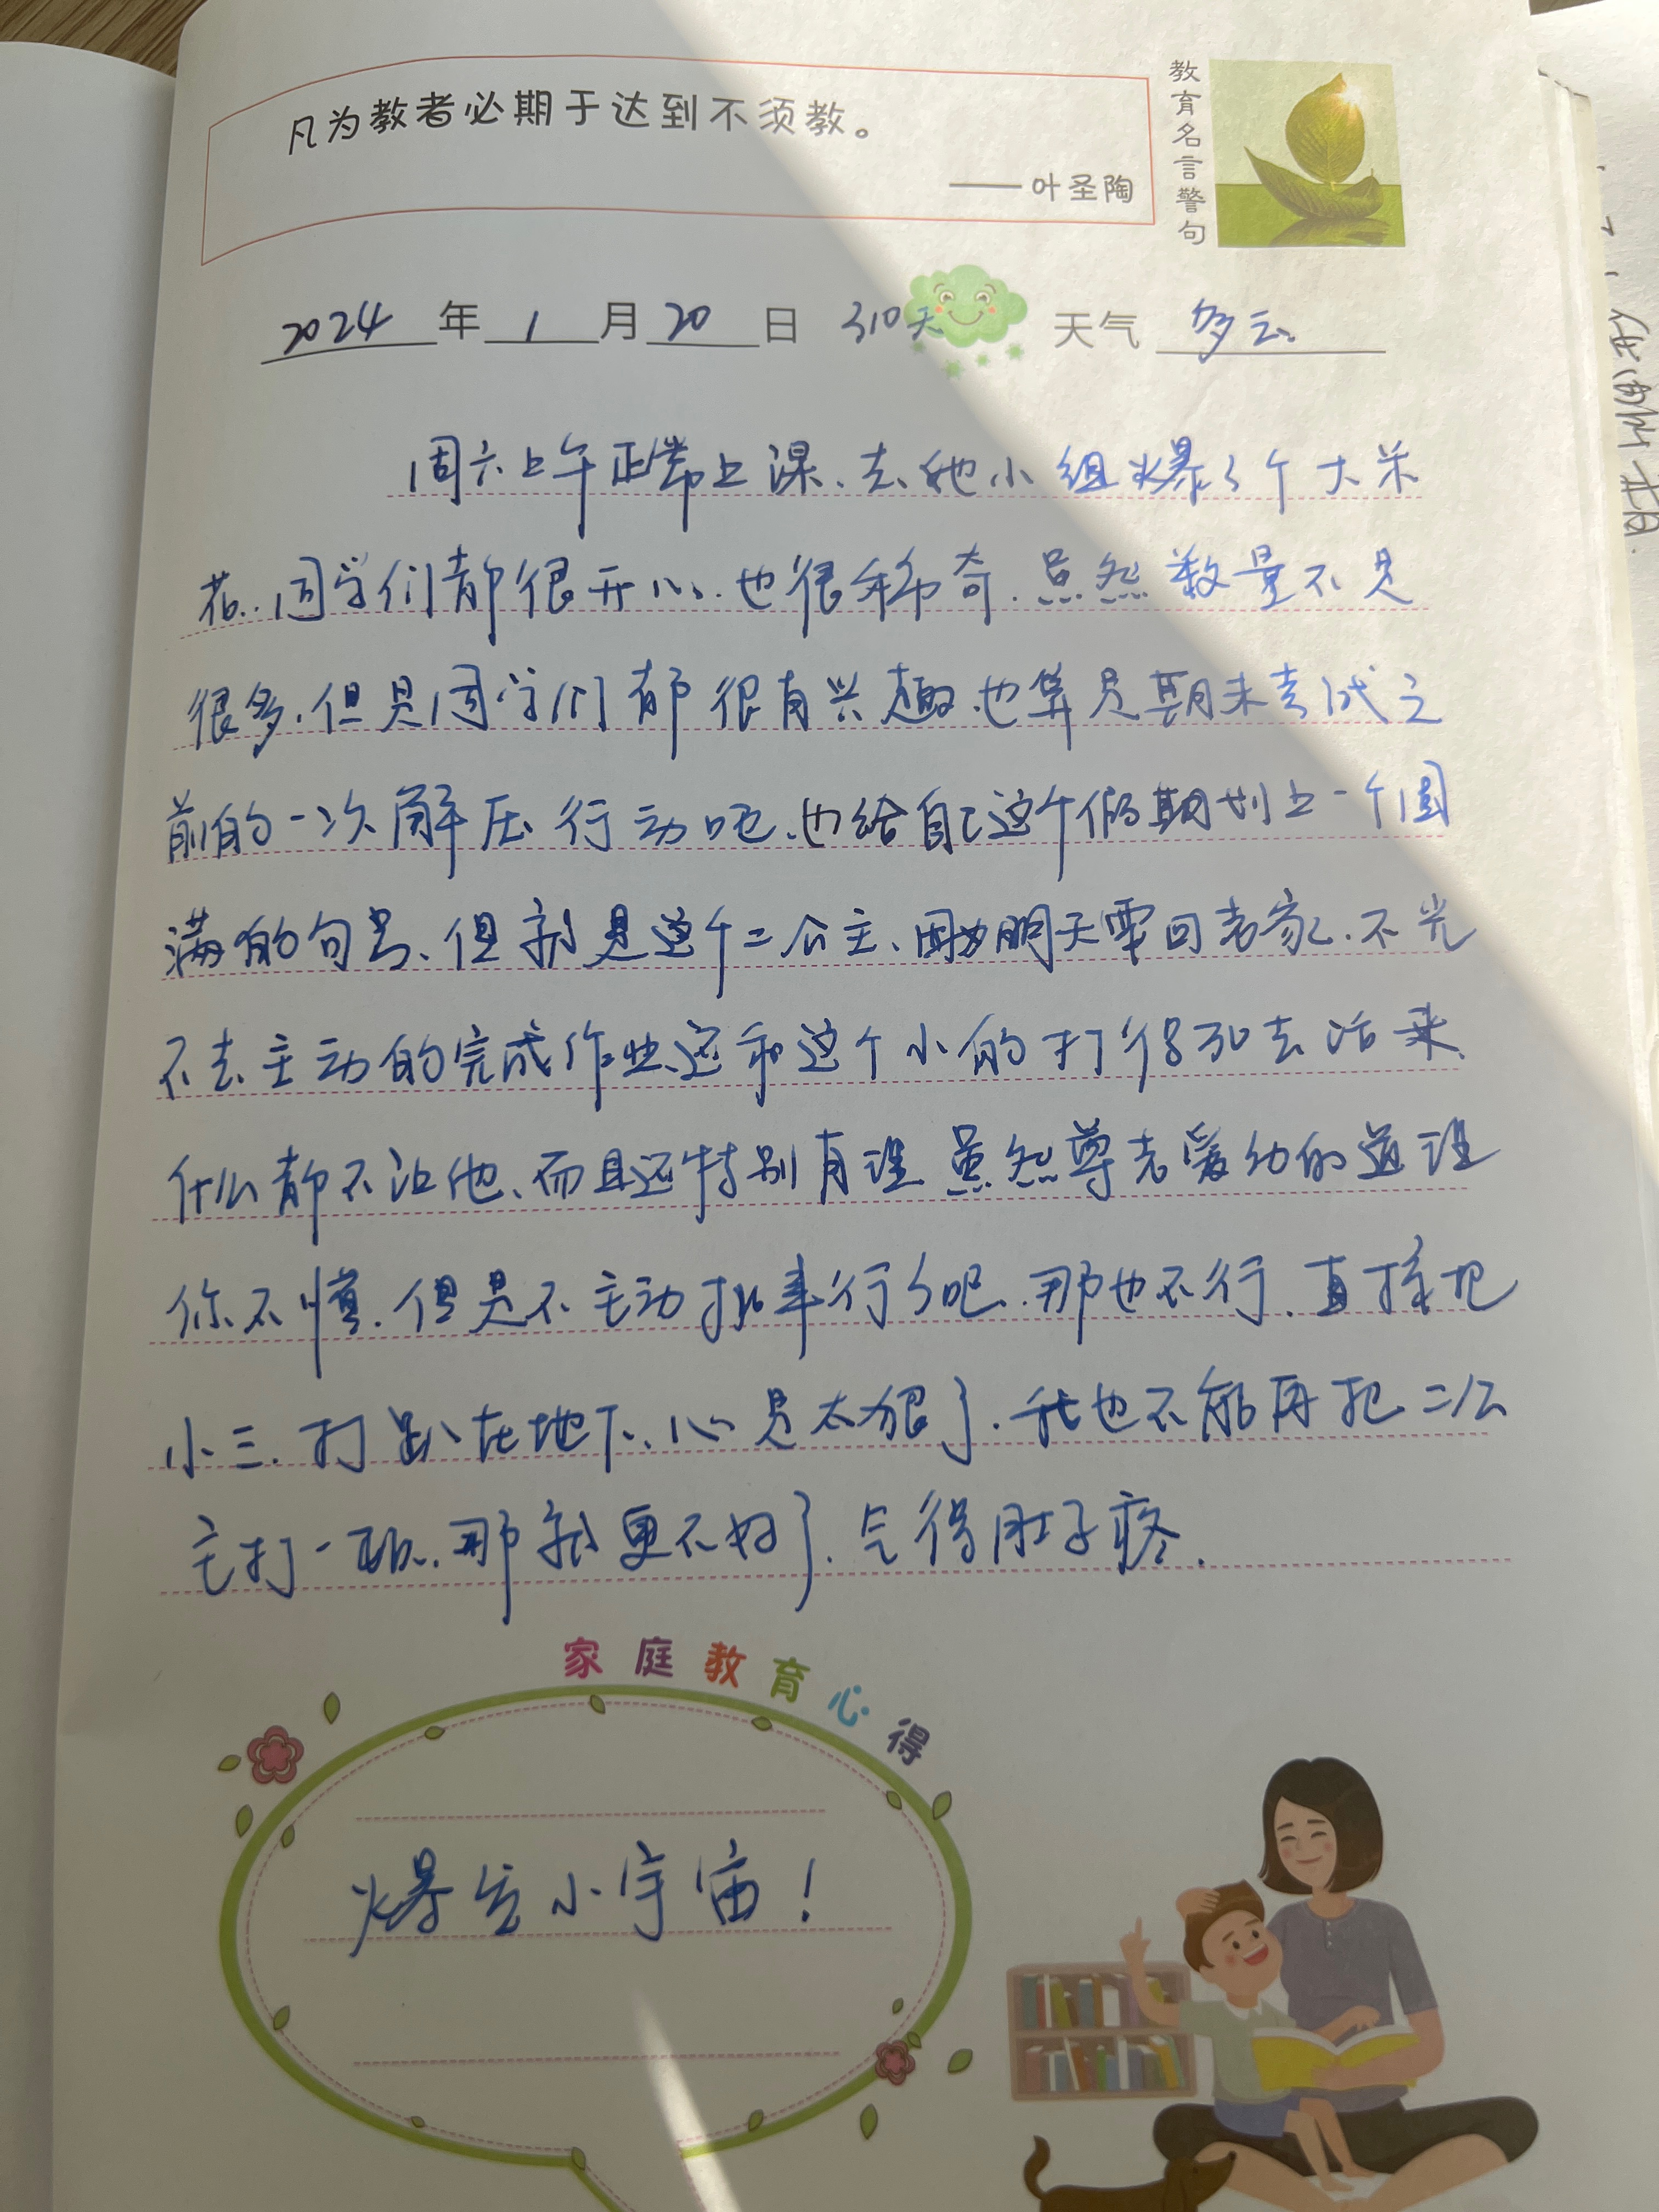 凡为教者必期于达到不须教。
——叶圣陶
教育名言警句
2024年1月20日 310天 天气 多云
周六上午正常上课、去她小组爆了个大米
花..同学们都很开心、也很稀奇.虽然数量不是
很多.但是同学们都很有兴趣.也算是期末考试之
前的一次解压行动吧、也给自己这个假期划上一个圆
满的句号、但就是这个二公主、因为明天要回老家、不光
不去主动的完成作业、还和这个小的打得死去活来、
什么都不让他、而且还特别有理 虽然尊老爱幼的道理
你不懂.但是不主动挑事行了吧.那也不行.直接把
小三.打趴在地下、心是太狠了.我也不能再把二公
主打一顿..那就更不好了.气得肚子疼.
家庭教育心得
爆发小宇宙！